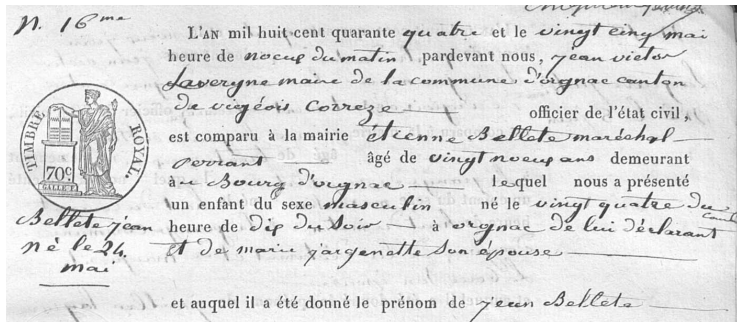 N. 16me
L'AN mil huit cent quarante quatre et le vingt cinq mai
heure de noeuf du matin pardevant nous, jean victor
Lavergne maire de la commune d'orgnac canton
de vigeois Correze officier de l'état civil,
est comparu à la mairie étienne Bellete maréchal
ferrant âgé de vingt noeuf ans demeurant
au Bourg d'orgnac lequel nous a présenté
un enfant du sexe masculin né le vingt quatre du
courant
heure de dix du soir à orgnac de lui déclarant
et de marie jargenette son épouse
et auquel il a été donné le prénom de jean Bellete
TIMBRE ROYAL.
70c
Bellete jean
né le 24
mai